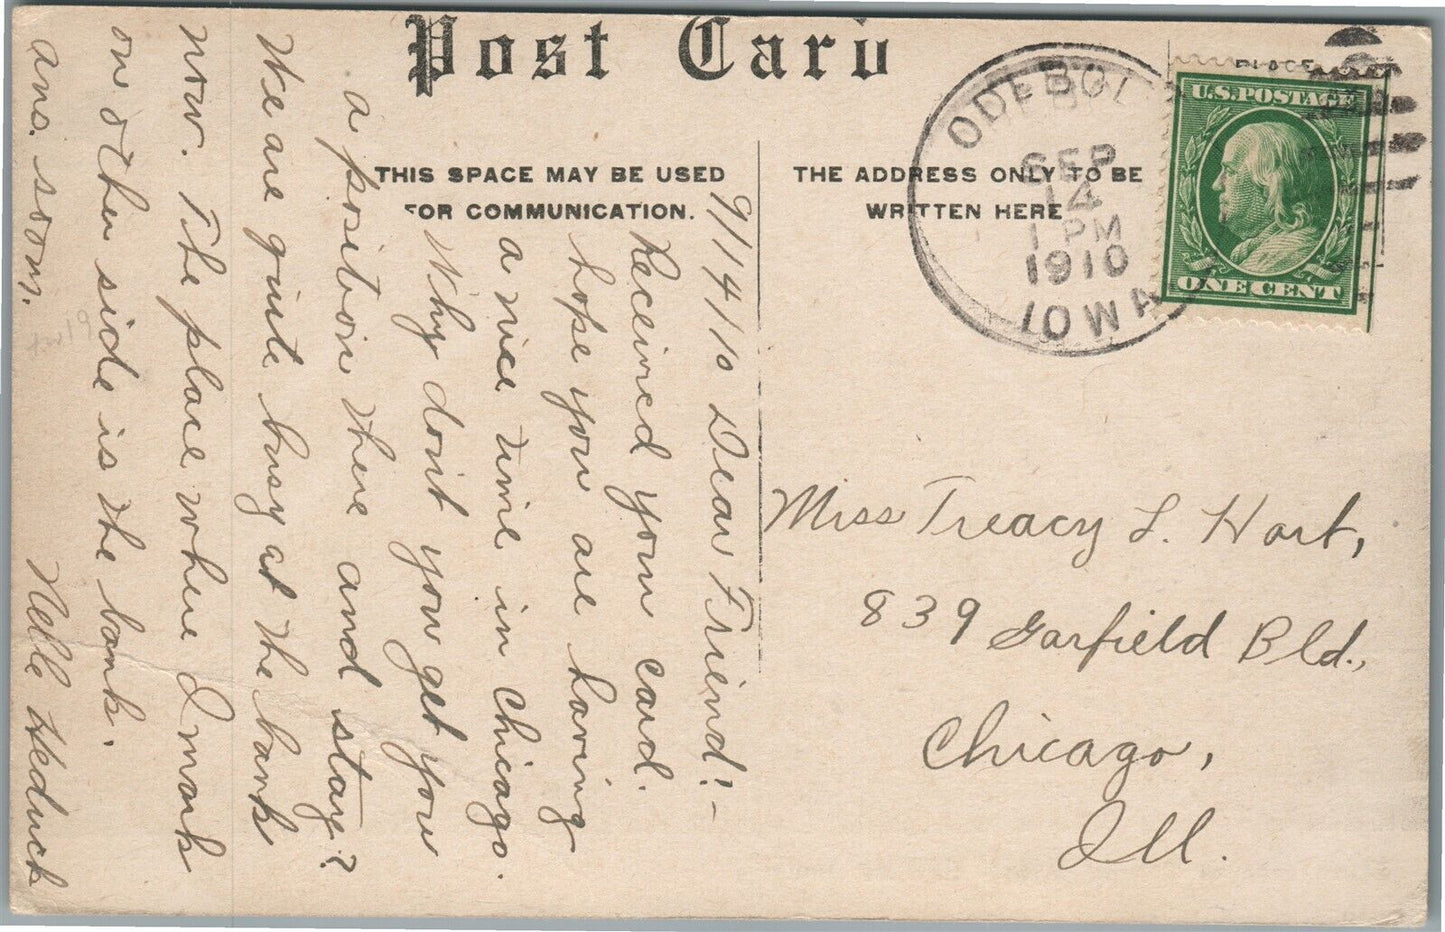 Post Card
THIS SPACE MAY BE USED
FOR COMMUNICATION.
THE ADDRESS ONLY TO BE
WRITTEN HERE
PLACE
ODEBOLT
SEP
14
1 PM
1910
IOWA
U.S. POSTAGE
ONE CENT
9/14/10 Dear Friend:-
Received your card.
hope you are having
a nice time in Chicago.
Why don't you get you
a position there and stay?
We are quite busy at the bank
now. The place where I mark
on other side is the bank.
ans. soon.
Nelle Heduck
Miss Treacy L. Hart,
839 Garfield Bld.,
Chicago,
Ill.